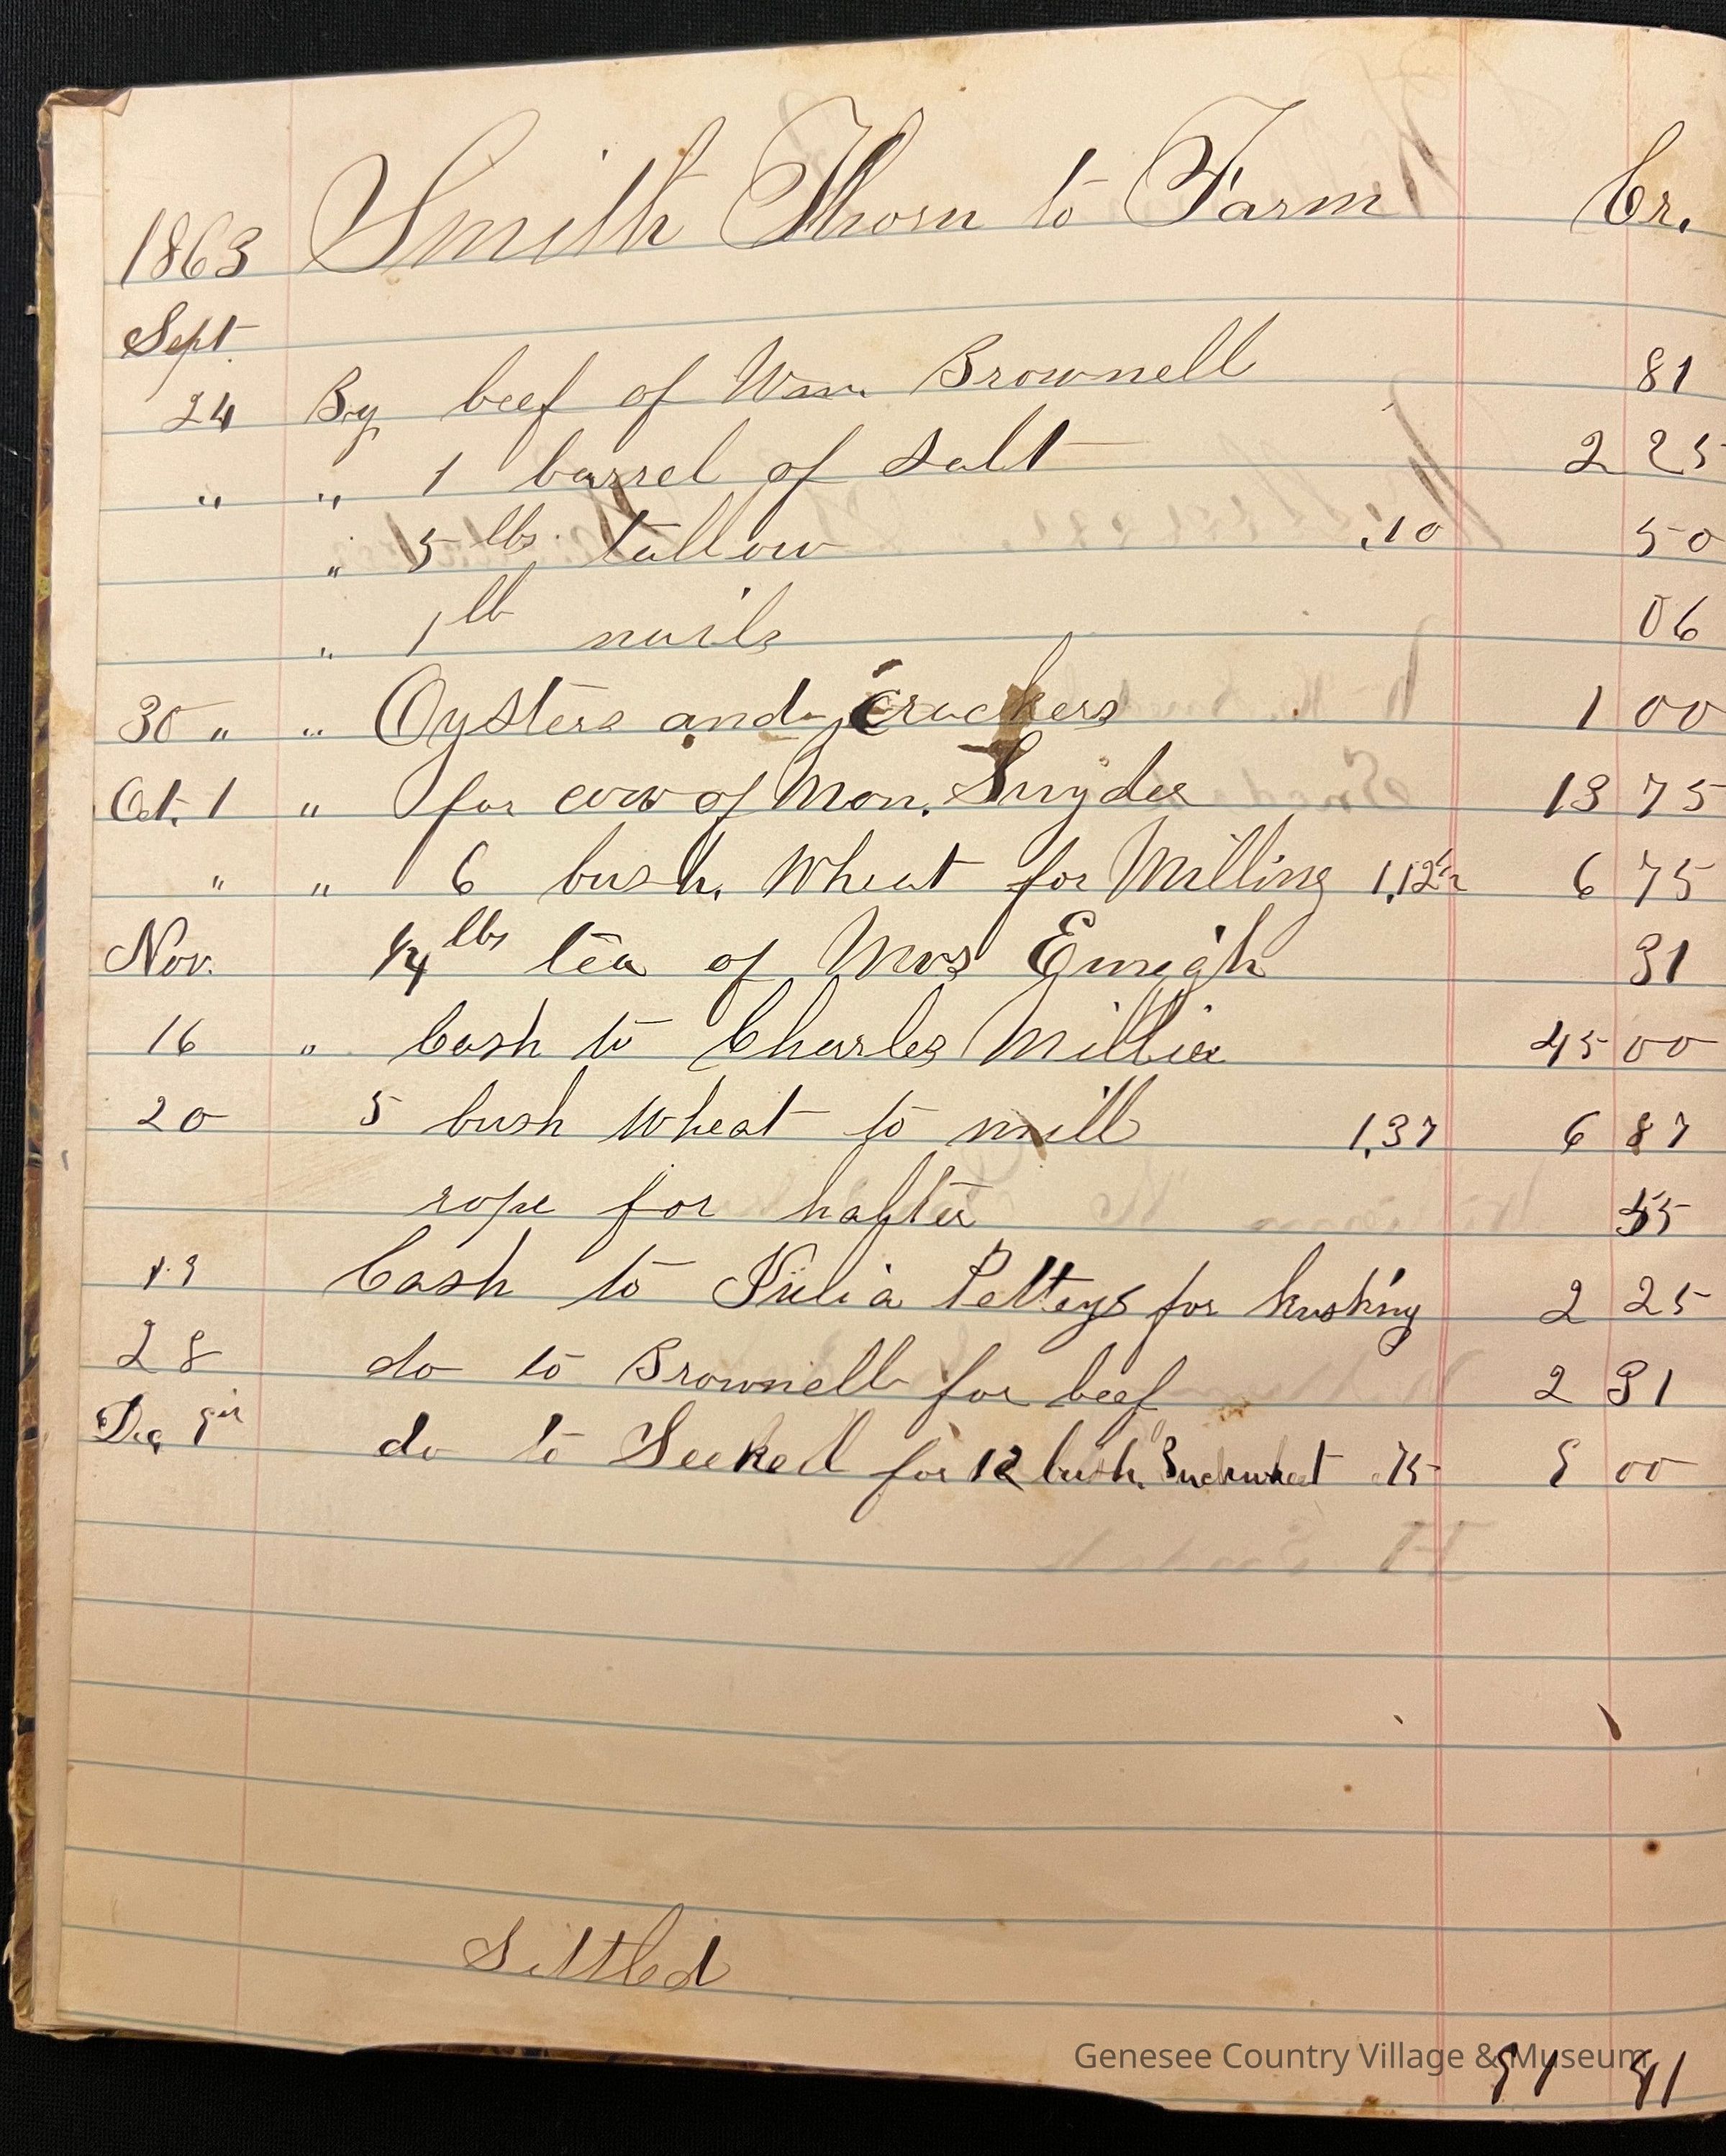 Smith Thorn to Farm Cr.
1863
Sept
24 By beef of Wm. Brownell 81
" " 1 barrel of salt 2 25
" 5 lbs. tallow .10 50
" 1 lb nails 06
30 " " Oysters and crackers 1 00
Oct. 1 " for cow of Mon. Snyder 13 75
" " 6 bush. Wheat for Milling 1.12½ 6 75
Nov. 1/4 lbs tea of Mrs Emigh 31
16 " Cash to Charles Miller 45 00
20 5 bush Wheat to mill 1.37 6 87
rope for halter 55
19 Cash to Julia Petteys for husking 2 25
28 do to Brownell for beef 2 31
Dec do to for 12 bush. Buckwheat .75 9 00
Settled
Genesee Country Village & Museum
91